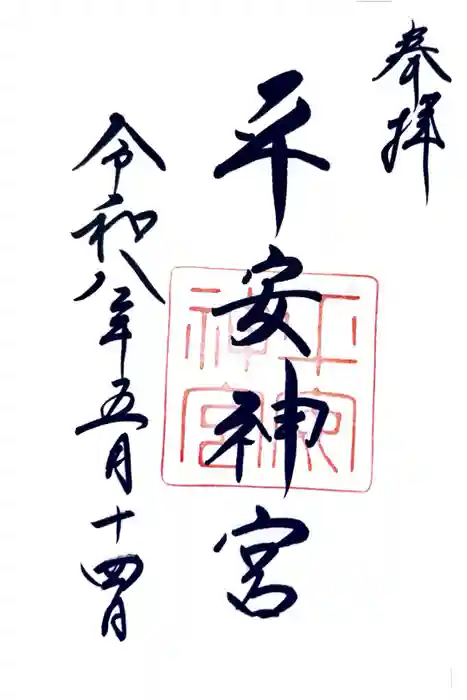 奉拝
平安神宮
令和八年五月十四日
平安神宮